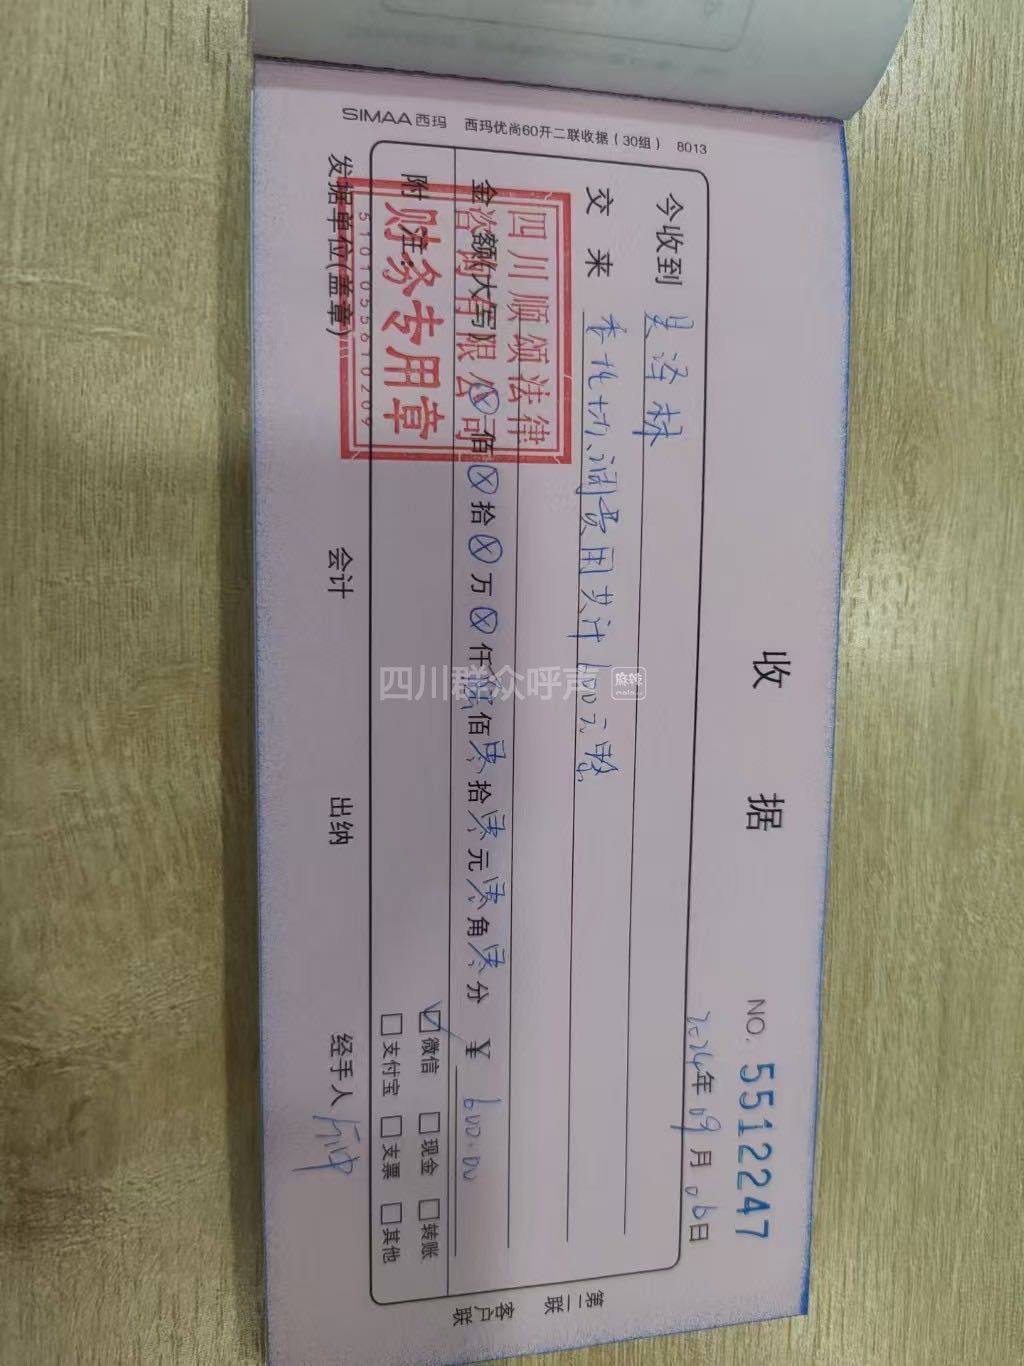 SIMAA西玛 西玛优尚60开二联收据(30组) 8013
收据
NO. 5512247
2024年09月06日
今收到 吴泽林
交来 委托协调费用共计600元整
金额(大写) ⊗佰⊗拾⊗万⊗仟陆佰零拾零元零角零分 ¥ 600.00
附注:
☑微信 □现金 □转账
□支付宝 □支票 □其他
发据单位(盖章) 会计 出纳 经手人
第二联 客户联
四川顺颂法律
咨询有限公司
财务专用章
5101055610209
四川群众呼声 麻辣